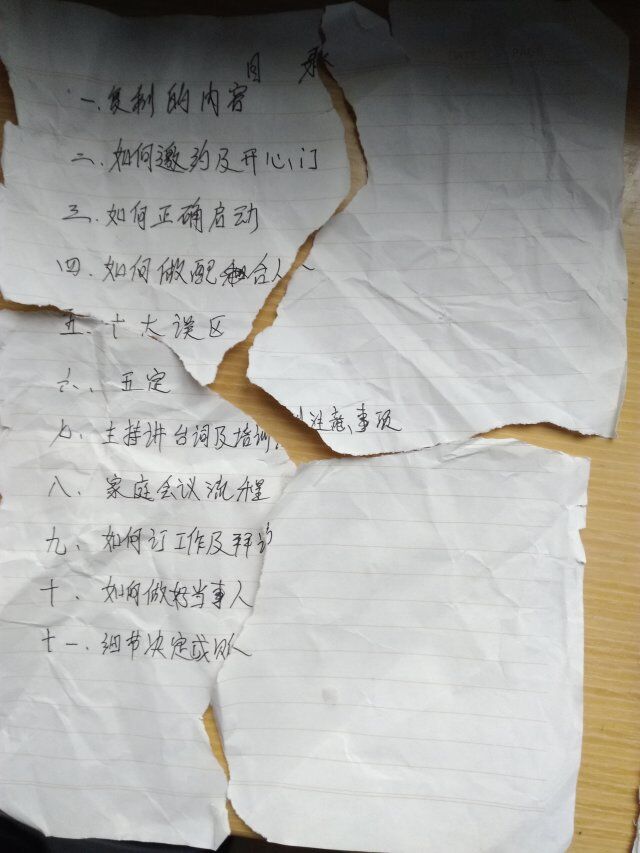 目 录
一、复制的内容
二、如何邀约及开心门
三、如何正确启动
四、如何做配合人
五、十大误区
六、五定
七、主持讲台词及培训注意事项
八、家庭会议流程
九、如何订工作及拜访
十、如何做好当事人
十一、细节决定成败